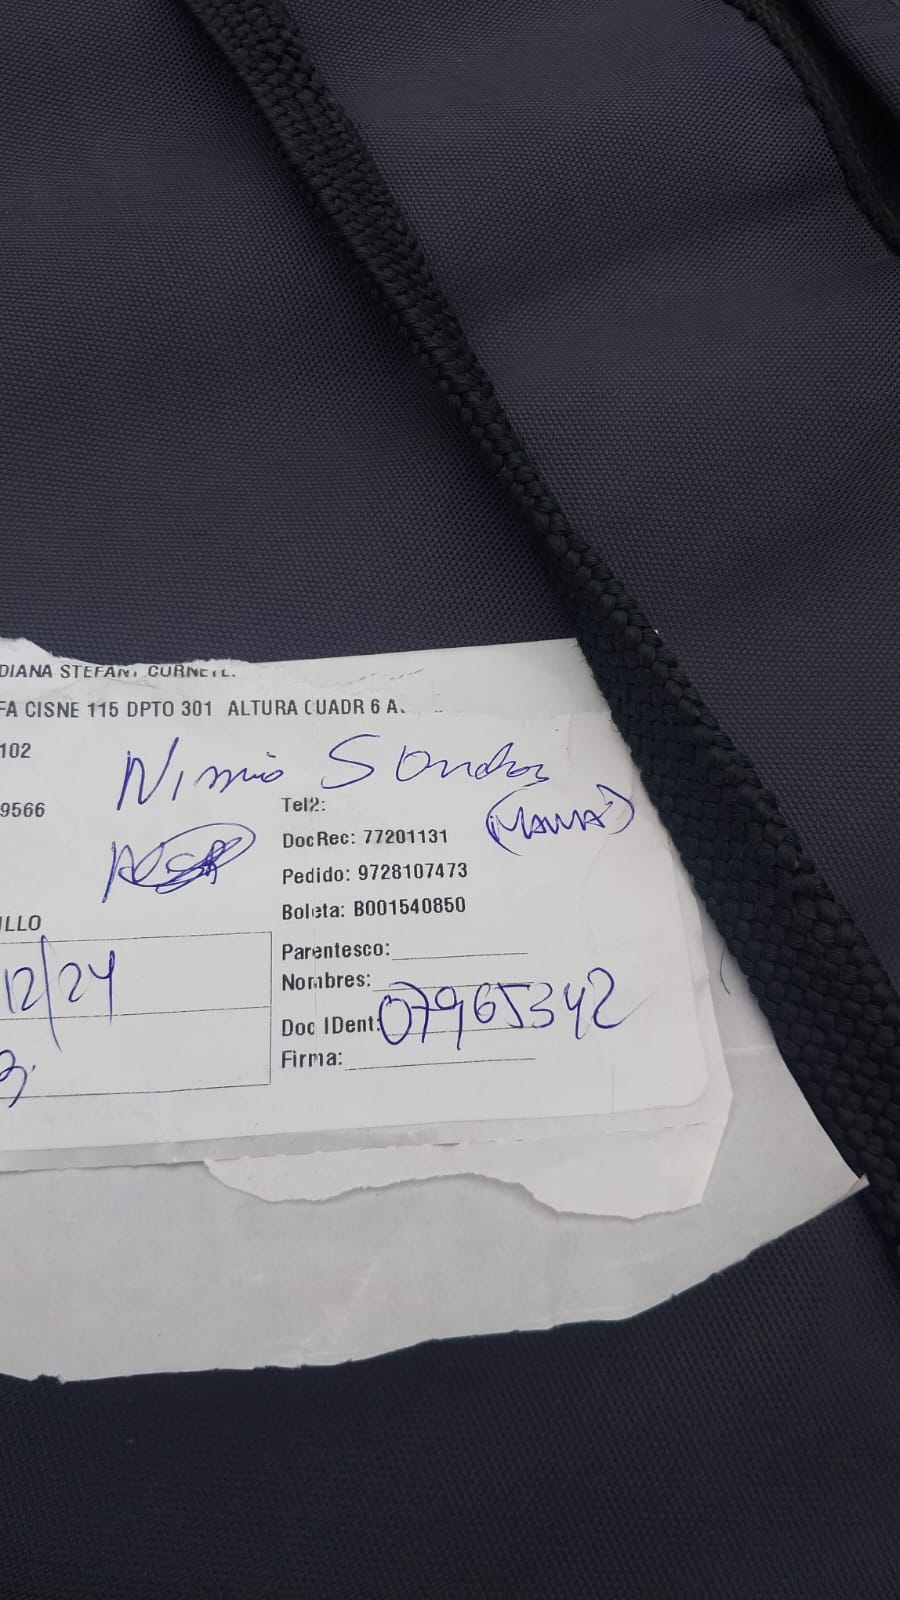 DIANA STEFANY CORNE
FA CISNE 115 DPTO 301 ALTURA CUADR 6 A.
102
9566
Tel2:
(MAMA)
DocRec: 77201131
Pedido: 9728107473
Boleta: B001540850
LLO
Parentesco:
12/24
Nombres:
Doc IDent: 07965342
Firma: